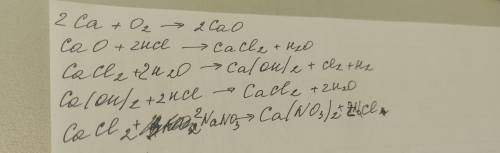 2Ca + O2 → 2CaO
CaO + 2HCl → CaCl2 + H2O
CaCl2 + 2H2O → Ca(OH)2 + Cl2 + H2
Ca(OH)2 + 2HCl → CaCl2 + 2H2O
CaCl2 + 2NaNO3 → Ca(NO3)2 +